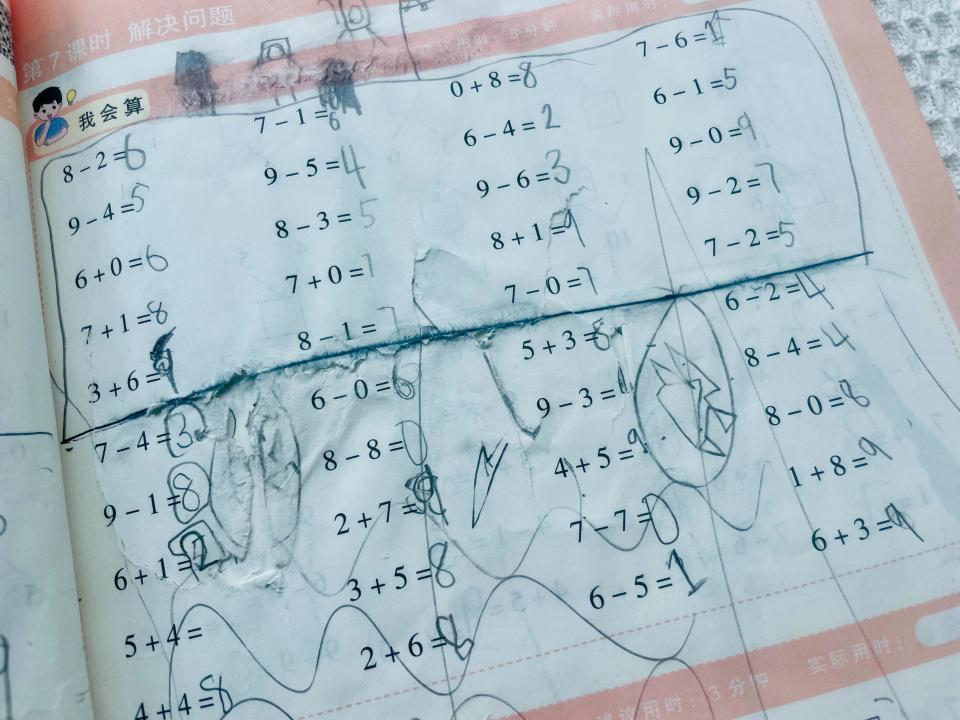 第7课时 解决问题
建议用时：5分钟 实际用时：
我会算
8-2=6
9-4=5
6+0=6
7+1=8
3+6=9
7-4=3
9-1=8
6+1=
5+4=
4+4=8
7-1=6
9-5=4
8-3=5
7+0=7
8-1=7
6-0=6
8-8=0
2+7=9
3+5=8
2+6=8
0+8=8
6-4=2
9-6=3
8+1=9
7-0=7
5+3=8
9-3=
4+5=9
7-7=0
6-5=1
7-6=1
6-1=5
9-0=9
9-2=7
7-2=5
6-2=4
8-4=4
8-0=8
1+8=9
6+3=9
建议用时：3分钟 实际用时：